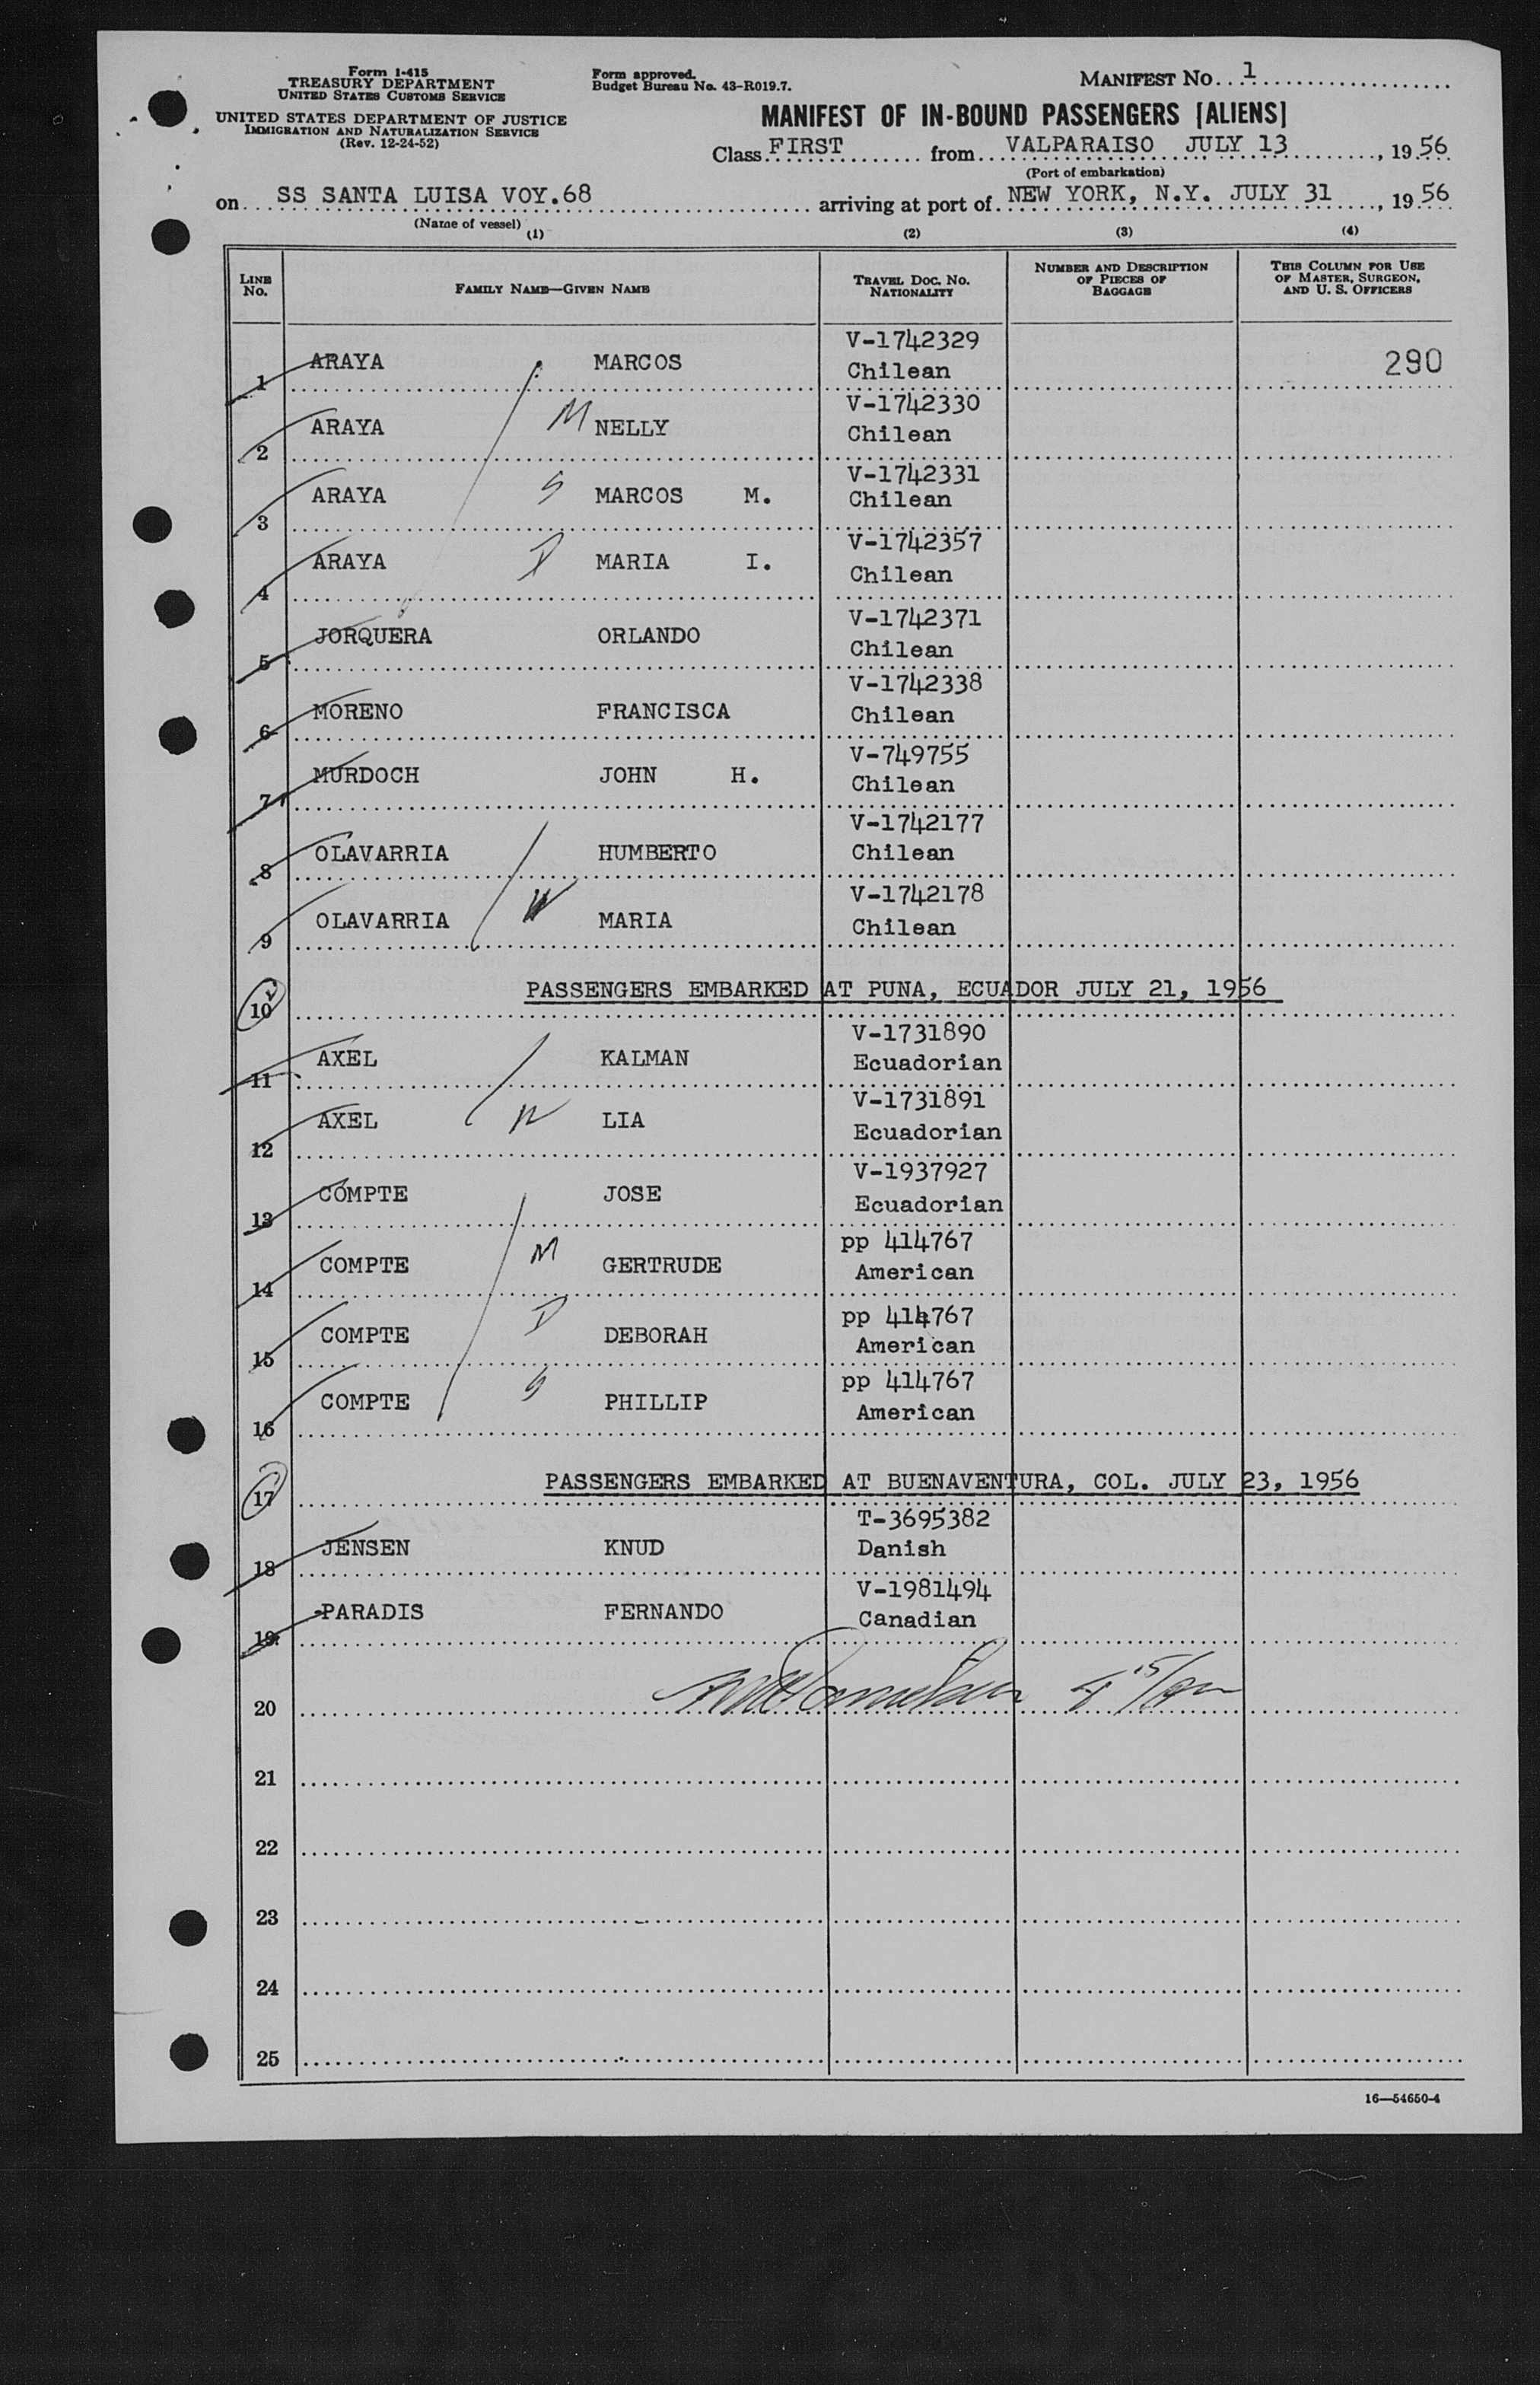 Form I-415
TREASURY DEPARTMENT
UNITED STATES CUSTOMS SERVICE
UNITED STATES DEPARTMENT OF JUSTICE
IMMIGRATION AND NATURALIZATION SERVICE
(Rev. 12-24-52)
Form approved.
Budget Bureau No. 43-R019.7.
MANIFEST NO. 1
MANIFEST OF IN-BOUND PASSENGERS [ALIENS]
Class FIRST from VALPARAISO JULY 13, 1956
(Port of embarkation)
on SS SANTA LUISA VOY.68 arriving at port of NEW YORK, N.Y. JULY 31, 1956
(Name of vessel)
(1) (2) (3) (4)
LINE No. FAMILY NAME—GIVEN NAME TRAVEL DOC. NO. NATIONALITY NUMBER AND DESCRIPTION OF PIECES OF BAGGAGE THIS COLUMN FOR USE OF MASTER, SURGEON, AND U. S. OFFICERS
1 ARAYA MARCOS V-1742329 Chilean 290
2 ARAYA M NELLY V-1742330 Chilean
3 ARAYA S MARCOS M. V-1742331 Chilean
4 ARAYA D MARIA I. V-1742357 Chilean
5 JORQUERA ORLANDO V-1742371 Chilean
6 MORENO FRANCISCA V-1742338 Chilean
7 MURDOCH JOHN H. V-749755 Chilean
8 OLAVARRIA HUMBERTO V-1742177 Chilean
9 OLAVARRIA W MARIA V-1742178 Chilean
10 PASSENGERS EMBARKED AT PUNA, ECUADOR JULY 21, 1956
11 AXEL KALMAN V-1731890 Ecuadorian
12 AXEL W LIA V-1731891 Ecuadorian
13 COMPTE JOSE V-1937927 Ecuadorian
14 COMPTE M GERTRUDE pp 414767 American
15 COMPTE D DEBORAH pp 414767 American
16 COMPTE S PHILLIP pp 414767 American
17 PASSENGERS EMBARKED AT BUENAVENTURA, COL. JULY 23, 1956
18 JENSEN KNUD T-3695382 Danish
19 PARADIS FERNANDO V-1981494 Canadian
20
21
22
23
24
25
16—54650-4